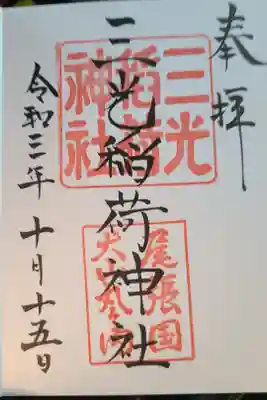 奉拝
三光稲荷神社
三光稲荷神社
尾張国
令和三年 十月十五日